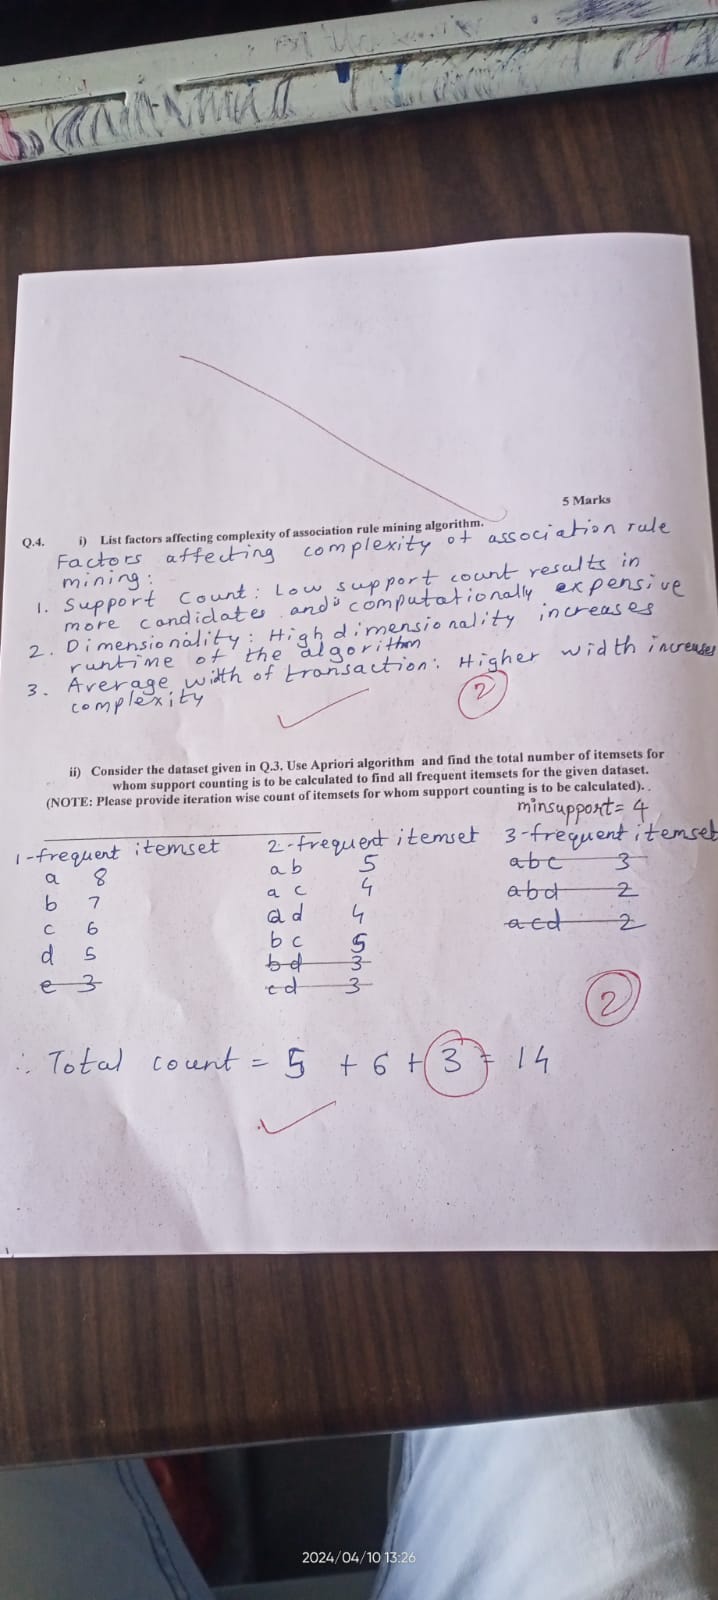 5 Marks
Q.4. i) List factors affecting complexity of association rule mining algorithm.
Factors affecting complexity of association rule
mining:
1. Support count: Low support count results in
more candidates and is computationally expensive
2. Dimensionality: High dimensionality increases
runtime of the algorithm
3. Average width of transaction: Higher width increases
complexity
2
ii) Consider the dataset given in Q.3. Use Apriori algorithm and find the total number of itemsets for
whom support counting is to be calculated to find all frequent itemsets for the given dataset.
(NOTE: Please provide iteration wise count of itemsets for whom support counting is to be calculated). .
minsupport= 4
1-frequent itemset 2-frequent itemset 3-frequent itemset
a 8 ab 5 abc 3
b 7 a c 4 abd 2
c 6 ad 4 acd 2
d 5 bc 5
e 3 bd 3
cd 3
2
∴ Total count = 5 + 6 + 3 = 14
2024/04/10 13:26